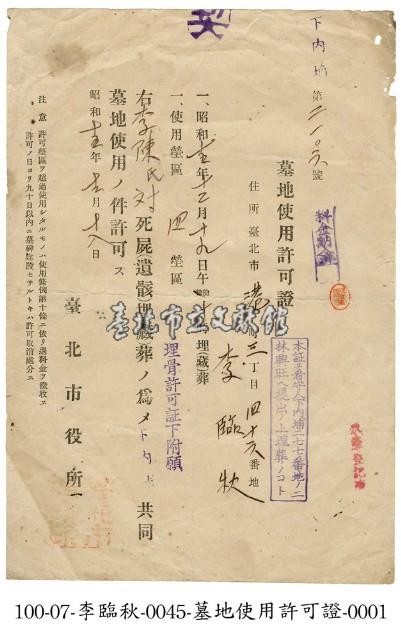 下內埔第二一〇六號
料金納濟
墓地使用許可證
住所 臺北市 港町 三丁目 四十六番地
李臨秋
本証ヲ看守人下內埔二七七番地ノ二
林興旺ヘ提出ノ上埋葬ノコト
一、昭和十五年十二月十九日午 埋(藏)葬
一、使用塋區 四 塋區
埋骨許可証下附願
右李陳氏对死屍(遺骸)埋藏葬ノ為メ下內埔共同
墓地使用ノ件許可ス
昭和十五年十二月十八日
臺北市役所
注意 許可塋區ヲ超過使用シタルモノハ使用條例第十條ニ依リ過料金ヲ徵收ス
許可ノ日ヨリ九十日以內ニ墓碑建設セザルトキハ許可取消處分ス
臺北市立文獻館
100-07-李臨秋-0045-墓地使用許可證-0001